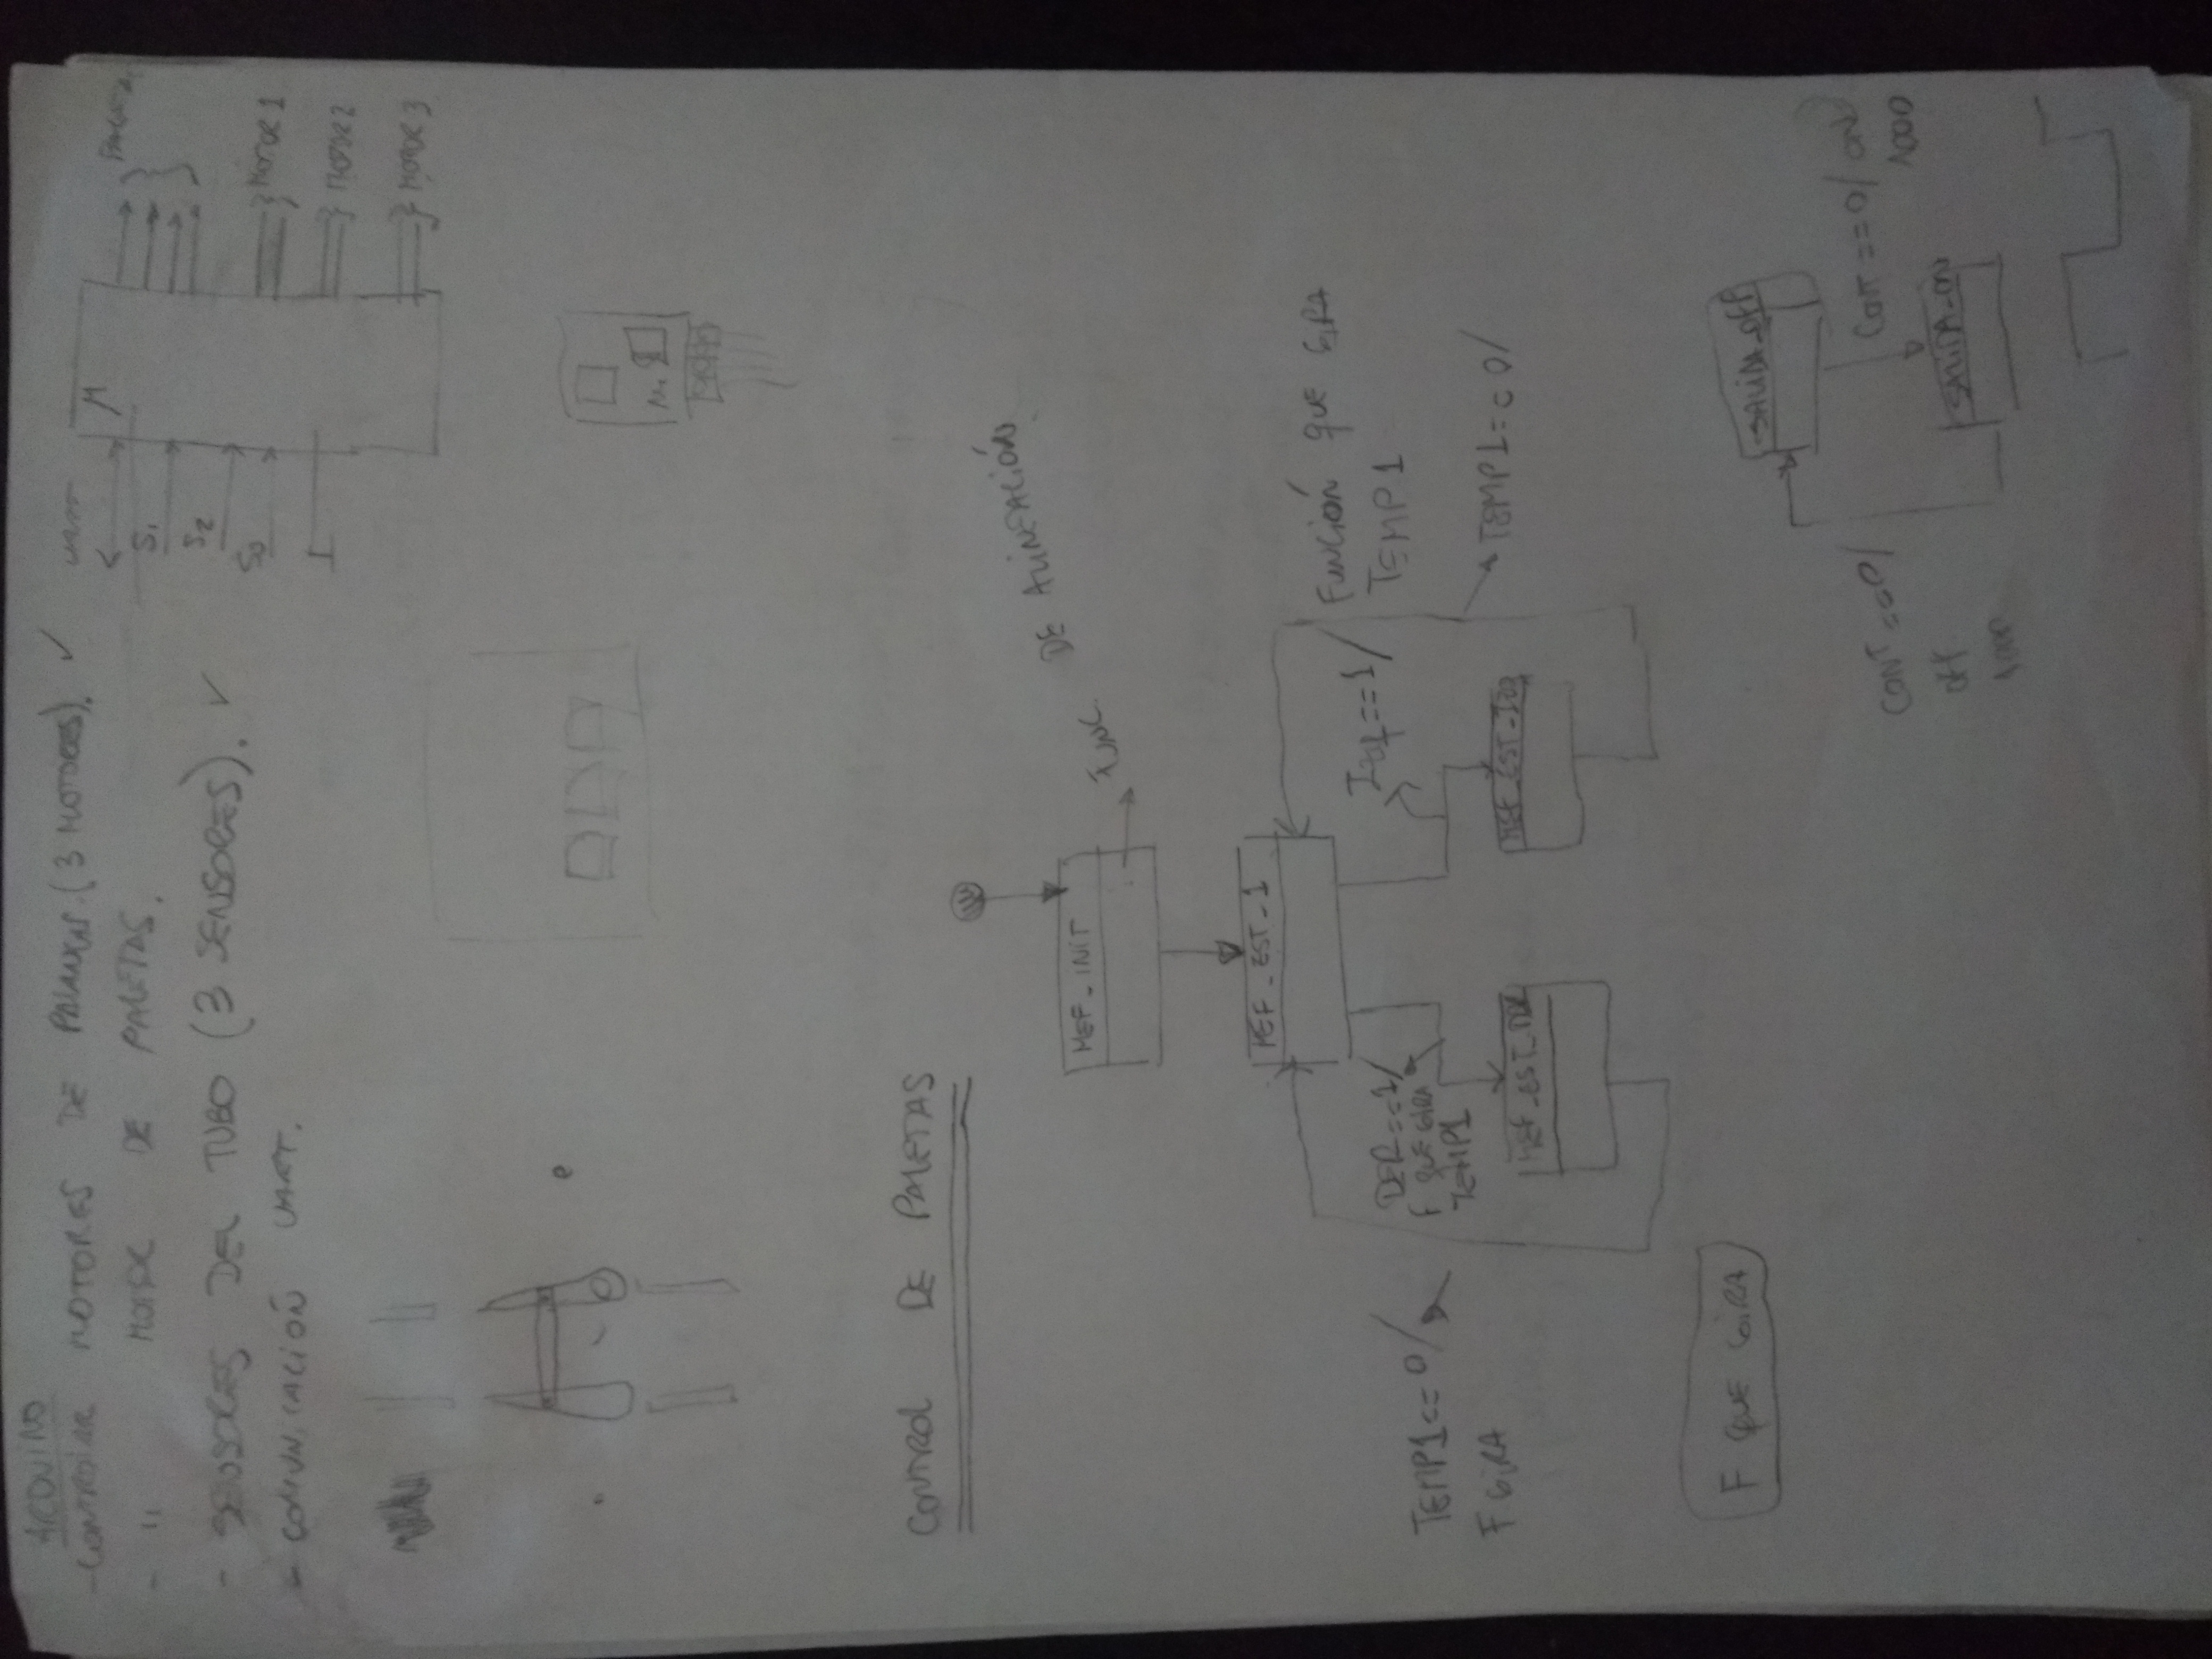 ARDUINO
- CONTROLAR MOTORES DE PALANCAS. (3 MOTORES). ✓
- " MOTOR DE PALETAS.
- SENSORES DEL TUBO (3 SENSORES). ✓
- COMUNICACIÓN UART.
UART
M
S1
S2
S0
MOTOR 1
MOTOR 2
MOTOR 3
CONTROL DE PALETAS
MEF_INIT
FUNC. DE ALINEACIÓN
MEF_EST_1
TEMP1==0/
F GIRA
DER==1/
F QUE GIRA
TEMP1
Izq==1/
FUNCIÓN QUE GIRA
TEMP1
TEMP1==0/
MEF_EST_DER
MEF_EST_IZQ
F QUE GIRA
SALIDA_OFF
CONT==0/
off
CONT==0/ ON
1000
SALIDA_ON